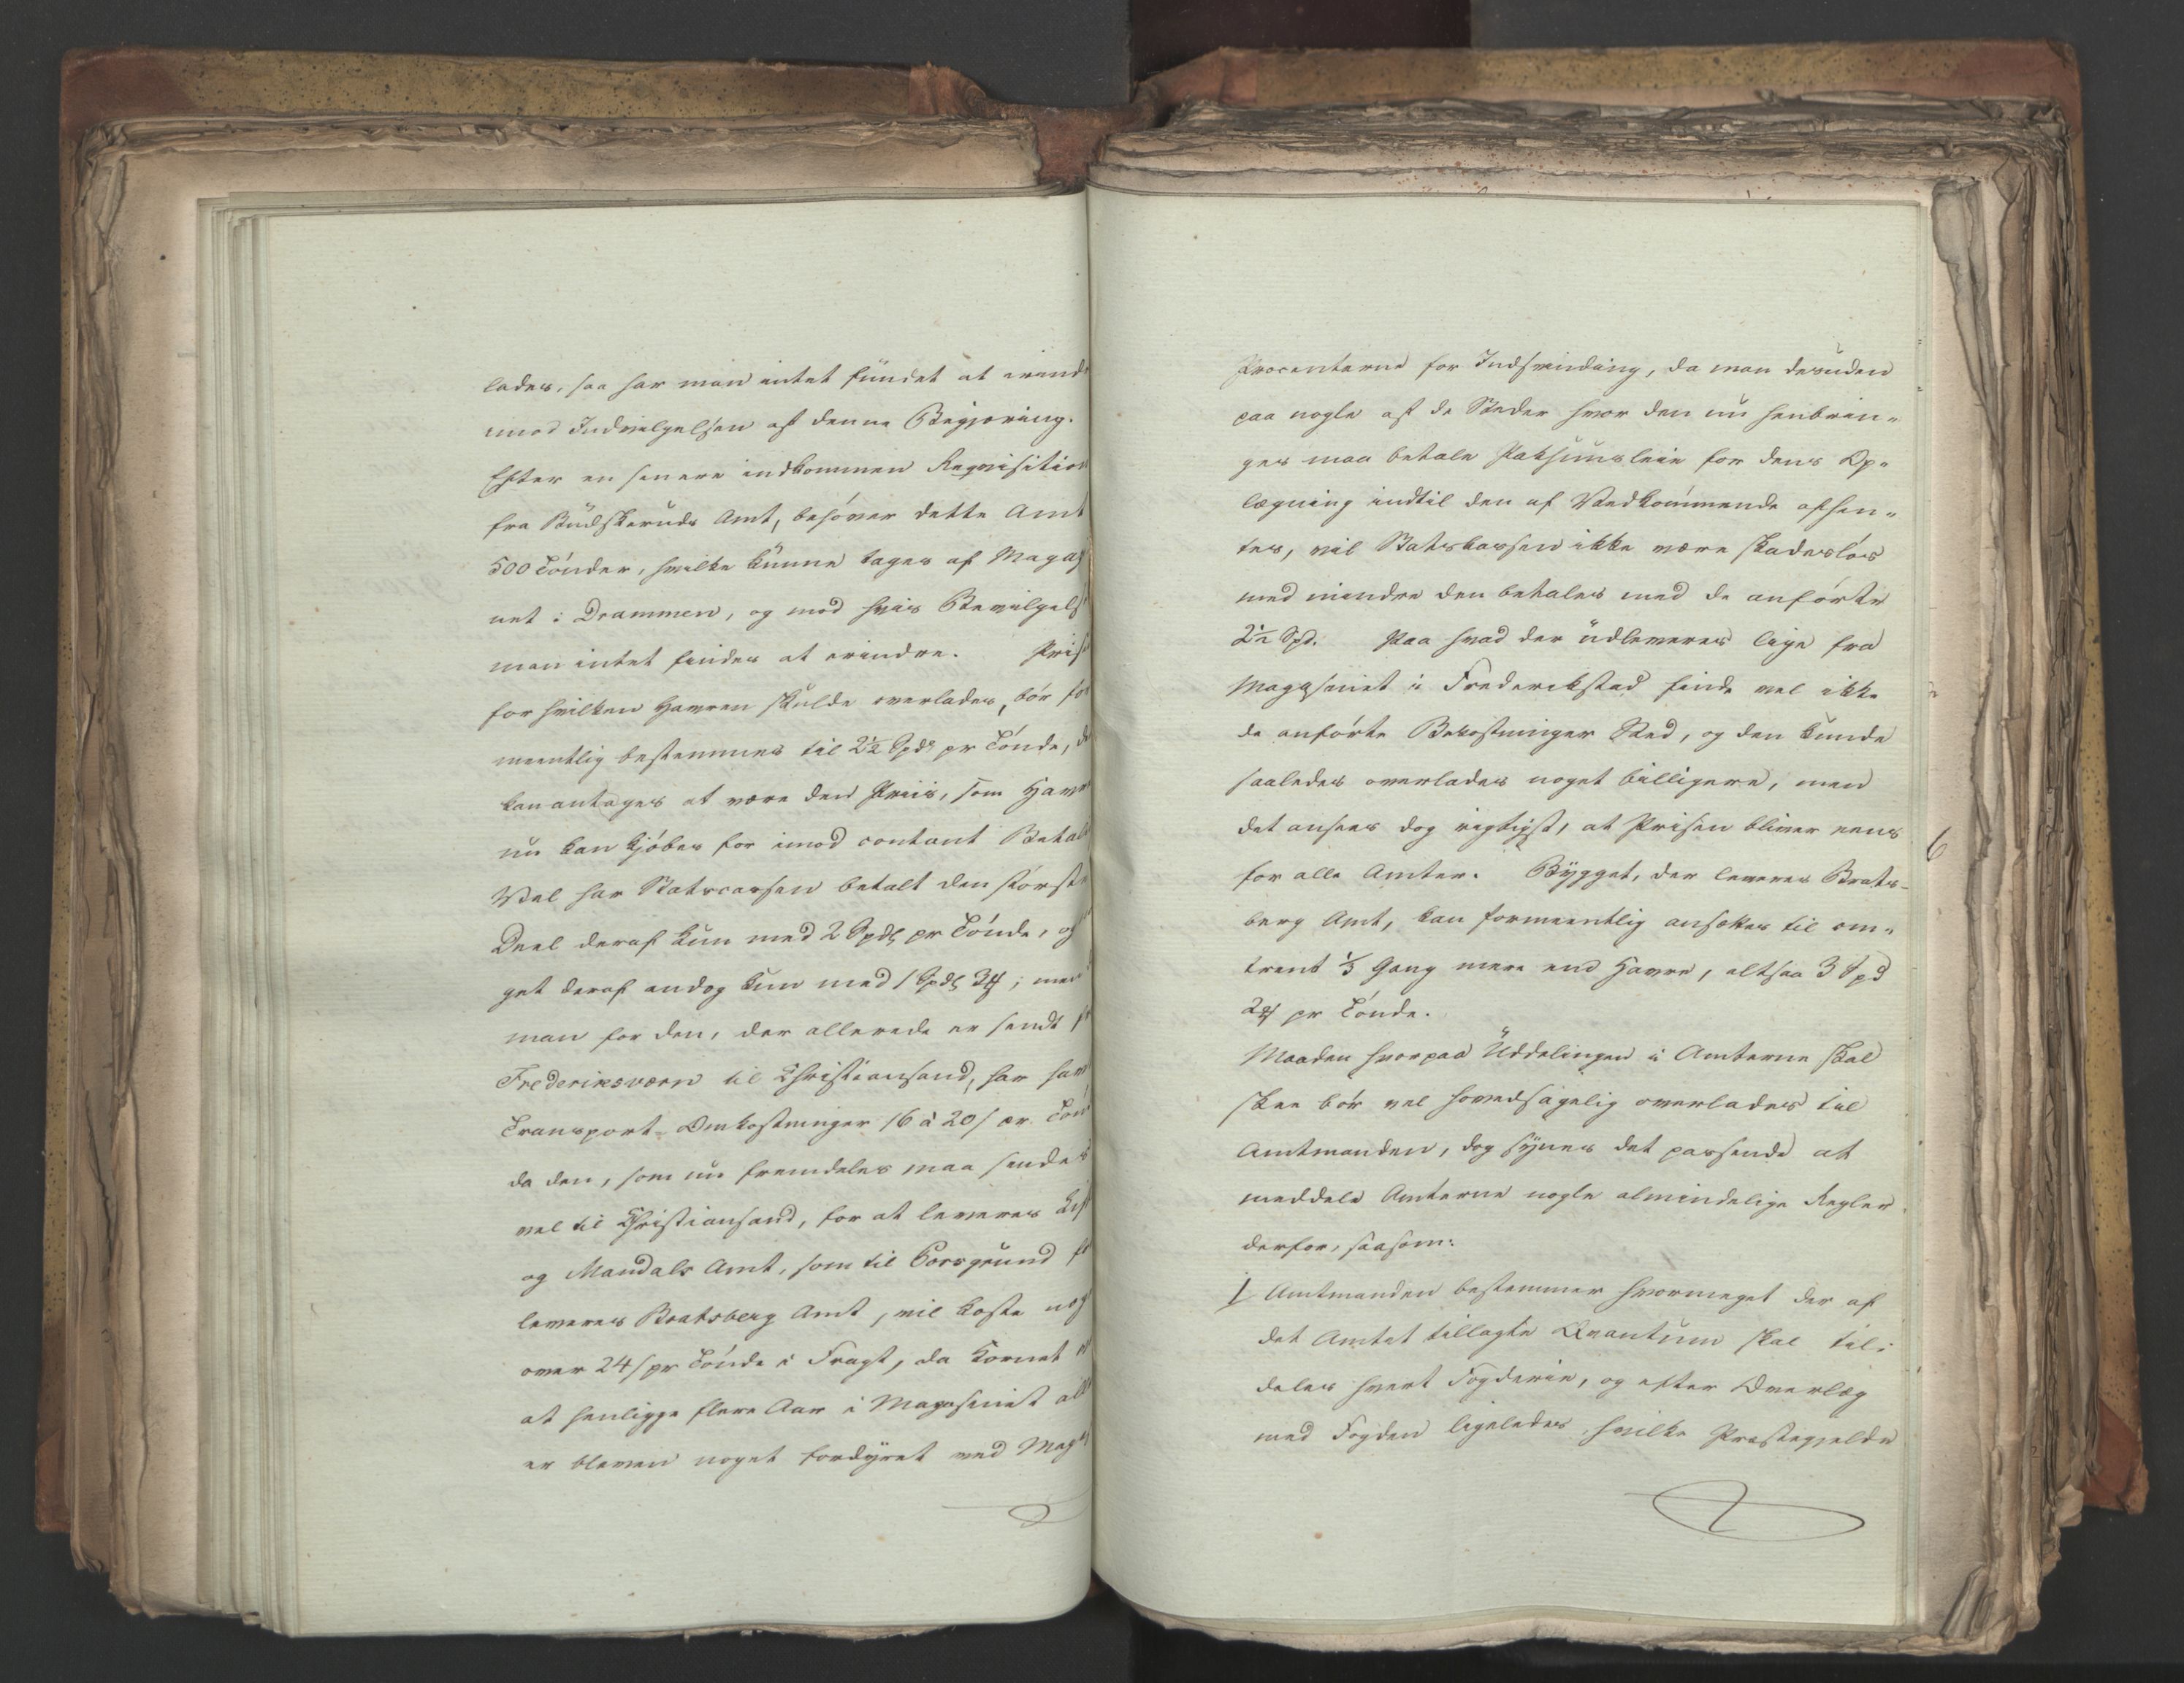 lades, saa har man intet fundet at erind
imod Indvilgelsen af denne Begjæring.
Efter en senere indkommen Reqvisition
fra Budskeruds Amt, behøver dette Amt
500 Tønder, hvilke kunne tages af Magaz
net i Drammen, og mod hvis Bevilgels
man intet finder at erindre. Pris
for hvilken Havren skulde overlades, bør for
meentlig bestemmes til 2½ Spd. pr Tønde, d
kan antages at være den Priis, som Havr
nu kan kjøbes for imod contant Betal
Vel har Statscassen betalt den største
Deel deraf kun med 2 Spd. pr Tønde, og
get deraf endog kun med 1 Spd. 3 ; men
man for den, der allerede er sendt fr
Frederiksværn til Christiansand, har hav
Transport-Omkostninger 16 à 20 s pr. Tøn
da den, som nu fremdeles maa sendes
vel til Christiansand, for at leveres List
og Mandals Amt, som til Porsgrund f
leveres Bratsberg Amt, vil koste nog
over 24 s pr Tønde i Fragt, da Kornet
at henligge flere Aar i Magasinet all
er bleven noget fordyret ved Mag
Procenterne for Indsvinding, da man desuden
paa nogle af de Steder hvor den nu henbrin„
ges maa betale Pakhuusleie for dens Op„
lægning indtil den af Vedkommende afhen„
tes, vil Statskassen ikke være skadesløs
med mindre den betales med de anførte
2½ Spd. Paa hvad der udleveres lige fra
Magasinet i Frederikstad finde vel ikke
de anførte Bekostninger Sted, og den kunde
saaledes overlades noget billigere, men
det ansees dog rigtigst, at Prisen bliver eens
for alle Amter. Bygget, der leveres Brats-
berg Amt, kan formeentlig ansættes til om„
trent ⅓ Gang mere end Havre, altsaa 3 Spd
2 pr Tønde.
Maaden hvorpaa Uddelingen i Amterne skal
skee bør vel hovedsagelig overlades til
Amtmanden, dog synes det passende at
meddele Amterne nogle almindelige Regler
derfor, saasom:
1, Amtmanden bestemmer hvormeget der af
det Amtet tillagte Qvantum skal til„
deles hvert Fogderie, og efter Overlæg
med Fogden ligeledes, hvilke Præstegjelde